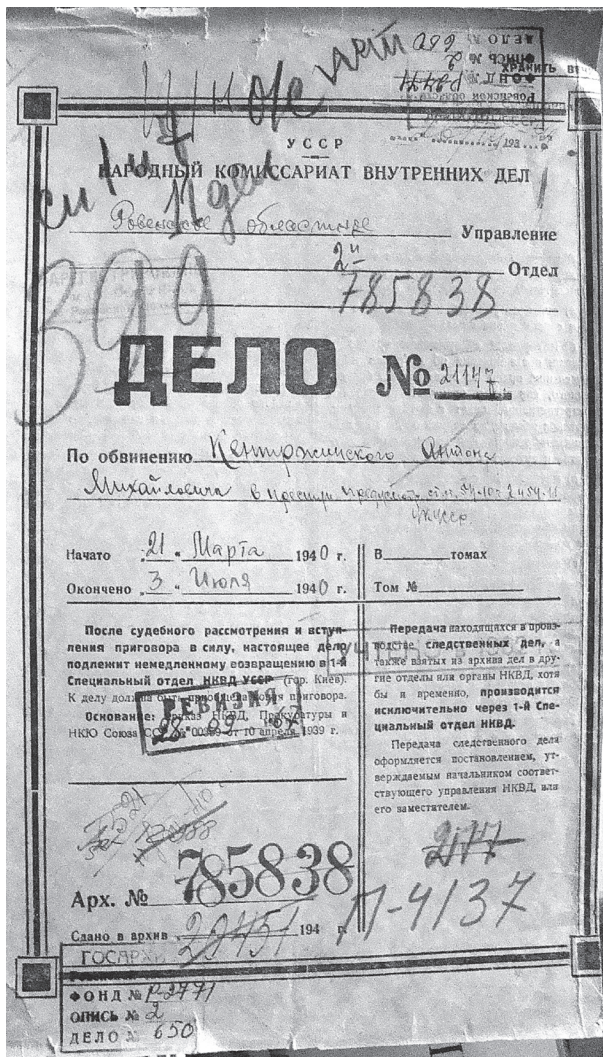 ДЕЛО № 650
ОПИСЬ № 2
ФОНД № Р2771
Ровенской област
ХРАНИТЬ ВЕЧ
193
УССР
НАРОДНЫЙ КОМИССАРИАТ ВНУТРЕННИХ ДЕЛ
Ровенское областное Управление
2й Отдел
785838
399
ДЕЛО № 21147
По обвинению Кентржинского Антона
Михайловича в
УКУССР
Начато „21“ Марта 1940 г.
Окончено „3“ Июля 1940 г.
В томах
Том №
После судебного рассмотрения и вступ-
ления приговора в силу, настоящее дело
подлежит немедленному возвращению в 1-й
Специальный отдел НКВД УССР (гор. Киев).
К делу должна быть приговора.
Основание: Приказ НКВД, Прокуратуры и
НКЮ Союза ССР № 00359 от 10 апреля 1939 г.
РЕВИЗИЯ
28 09 67
Передача находящихся в произ-
водстве следственных дел, а
также взятых из архива дел в дру-
гие отделы или органы НКВД, хотя
бы и временно, производится
исключительно через 1-й Спе-
циальный отдел НКВД.
Передача следственного дела
оформляется постановлением, ут-
верждаемым начальником соответ-
ствующего управления НКВД, или
его заместителем.
Арх. № 785838
П-4137
Сдано в архив 22451 194 г.
ГОСАРХИ
ФОНД № Р-2771
ОПИСЬ № 2
ДЕЛО № 650